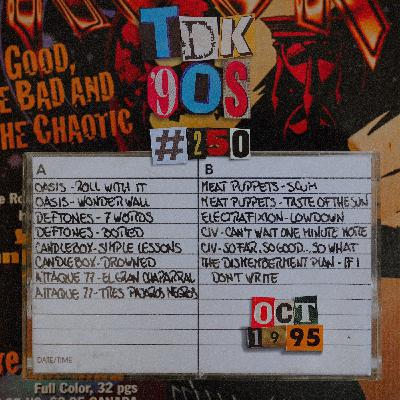 GOOD,
E BAD AND
HE CHAOTIC
TDK
'90S
#250
A
OASIS - ROLL WITH IT
OASIS - WONDERWALL
DEFTONES - 7 WORDS
DEFTONES - BORED
CANDLEBOX - SIMPLE LESSONS
CANDLEBOX - DROWNED
ATTAQUE 77 - EL GRAN CHAPARRAL
ATTAQUE 77 - TRES PAJAROS NEGROS
DATE/TIME
B
MEAT PUPPETS - SCUM
MEAT PUPPETS - TASTE OF THE SUN
ELECTRAFIXION - LOWDOWN
CIV - CAN'T WAIT ONE MINUTE MORE
CIV - SO FAR, SO GOOD... SO WHAT
THE DISMEMBERMENT PLAN - IF I
DON'T WRITE
OCT
1995
Full Color, 32 pgs